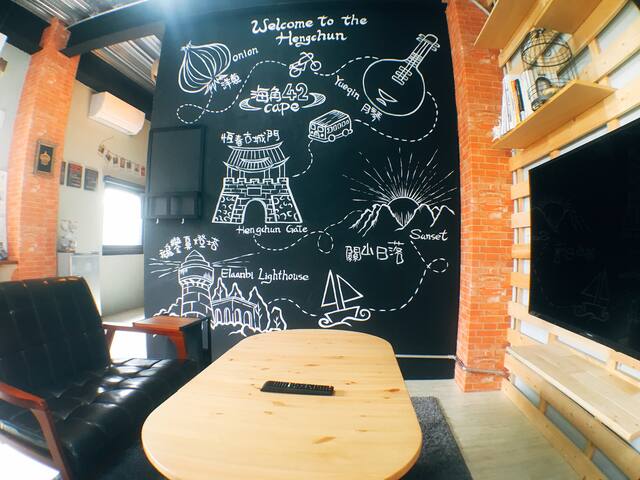 Welcome to the
Hengchun
onion
洋蔥
Yueqin
月琴
海角42
cape
恆春古城門
Hengchun Gate
Sunset
關山日落
鵝鑾鼻燈塔
Elaanbi Lighthouse